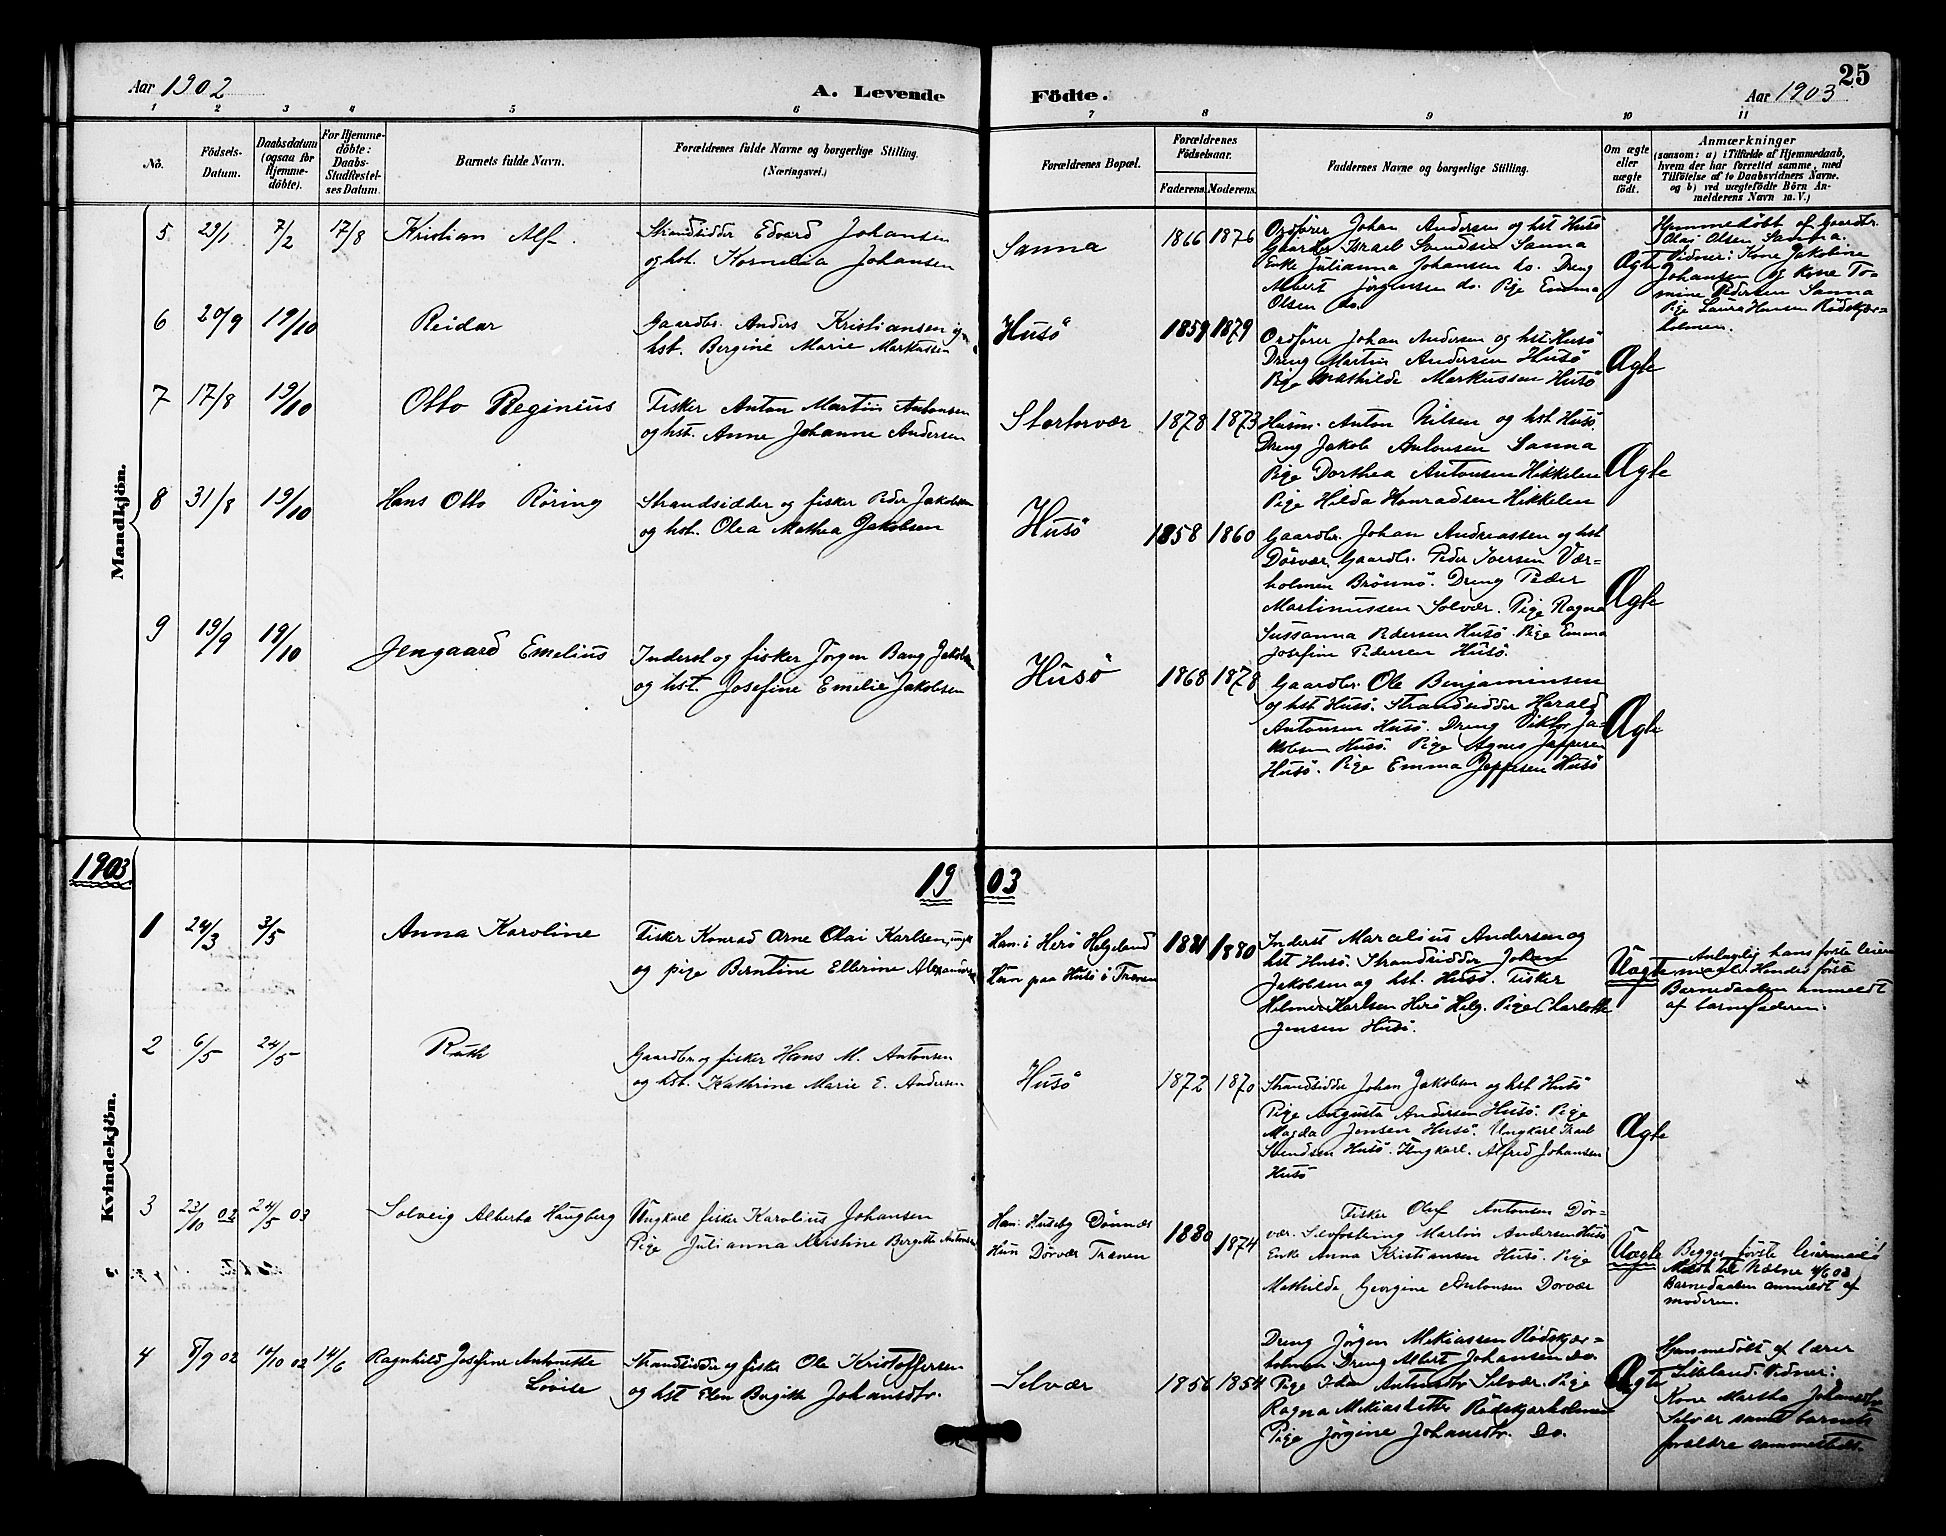 Aar 1902
A. Levende Födte.
Aar 1903
25
1 2 3 4 5 6 7 8 9 10 11
No.
Födsels-Datum.
Daabsdatum (ogsaa för Hjemme-döbte).
For Hjemme-döbte: Daabs-Stadfæstel-ses Datum.
Barnets fulde Navn.
Forældrenes fulde Navne og borgerlige Stilling. (Næringsvei.)
Forældrenes Bopæl.
Forældrenes Födselsaar.
Faderens. Moderens.
Faddernes Navne og borgerlige Stilling.
Om ægte eller uægte födt.
Anmærkninger
(saasom: a) i Tilfælde af Hjemmedaab,
hvem der har forrettet samme, med
Tilföielse af to Daabsvidners Navne.
og b) ved uægtefödte Börn An-
melderens Navn m.V.)
Mandkjön.
5 29/1 7/2 17/8 Kristian Alf
Strandsidder Edvard Johansen
og hst. Kornelia Johansen
Sanna 1866 1876
Ordförer Johan Andersen og hst Husö
Gaardbr Israel Svendsen Sanna
Enke Julianna Johansen do. Dreng
Albert Jörgensen do. Pige Emma
Olsen do.
Ægte
Hjemmedöbt af Gaardbr.
Olai Olsen Sanna.
Vidner: Kone Jakobine
Johansen og Kone To-
mine Pedersen Sanna
Pige Laura Hansen Rödskjær-
holmen.
6 20/9 19/10 Reidar
Gaardbr. Anders Kristiansen og
hst. Bergine Marie Markussen
Husö 1859 1879
Ordförer Johan Andersen og hst Husö
Dreng Martin Andersen Husö
Pige Mathilde Markussen Husö
Ægte
7 17/8 19/10 Otto Reginius
Fisker Anton Martin Antonsen
og hst. Anne Johanne Andersen
Stortorvær 1878 1873
Husm. Anton Nilsen og hst Husö.
Dreng Jakob Antonsen Sanna
Pige Dorthea Antonsen Hikkelen
Pige Hilda Konradsen Hikkelen
Ægte
8 31/8 19/10 Hans Otto Röring
Strandsidder og fisker Peder Jakobsen
og hst. Olea Mathea Jakobsen
Husö 1858 1860
Gaardbr. Johan Andreassen og hst
Dörvær, Gaardbr. Peder Iversen Vær-
holmen Brönnö. Dreng Peder
Martinussen Solvær. Pige Ragna
Sussanna Pedersen Husö. Pige Emma
Josefine Pedersen Husö.
Ægte
9 19/9 19/10 Jengaard Emelius
Inderst og fisker Jörgen Bang Jakobsen
og hst. Josefine Emelie Jakobsen
Husö 1868 1878
Gaardbr. Ole Benjaminsen
og hst Husö. Strandsidder Harald
Antonsen Husö. Dreng Viktor Ja-
kobsen Husö. Pige Agnes Jeppesen
Husö. Pige Emma Jeppesen Husö
Ægte
1903
1903
Kvindekjön.
1 24/3 3/5 Anna Karoline
Fisker Konrad Arne Olai Karlsen, ungk
og pige Berntine Ellerine Alexandersen
Han: i Herö Helgeland
Hun paa Husö i Trænen
1881 1880
Inderst Marcelius Andersen og
hst Husö. Strandsidder Johan
Jakobsen og hst. Husö. Fisker
Helmer Karlsen Herö Helg. Pige Charlotte
Jensen Husö.
Uægte
Anlagelig hans förste leier-
maal. Hendes förste
Barnedaaben anmeldt
af barnefaderen.
2 6/5 24/5 Ruth
Gaardbr og fisker Hans M. Antonsen
og hst. Kathrine Marie E. Andersen
Husö 1872 1870
Strandsidder Johan Jakobsen og hst Husö
Pige Augusta Andersen Husö. Pige
Magda Jensen Husö. Ungkarl Israel
Svendsen Husö. Ungkarl. Alfred Johansen
Husö
Ægte
3 23/10 02 24/5 03 Solveig Alberta Haugberg
Ungkarl fisker Karolius Johansen
Pige Julianna Kristine Bergitte Antonsen
Han: Huseby Dönnæs
Hun Dörvær Trænen
1880 1874
Fisker Olef Antonsen Dör-
vær. Selvfostring Martin Andersen Husö
Enke Anna Kristiansen Husö. Pige
Mathilda Georgine Antonsen Dörvær
Uægte
Begges förste leiermaal
Meldt til Næsne 4/6 03
Barnedaaben anmeldt af
moderen.
4 8/9 02 12/10 02 14/6 Ragnhild Josefine Antonette
Lovise
Strandsidder og fisker Ole Kristoffersen
og hst Elen Bergitte Johansdtr.
Selvær 1856 1854
Dreng Jörgen Mekiassen Rödskjær-
holmen Dreng Albert Johansen do.
Pige Ida Antonsdtr Selvær. Pige
Ragna Mekiasdatter Rödskjærholmen
Pige Jörgine Johansdtr. do.
Ægte
Hjemmedöbt af lærer
Sitsland. Vidner:
Kone Martha Johansdtr
Selvær samt barnets
forældre sammesteds.